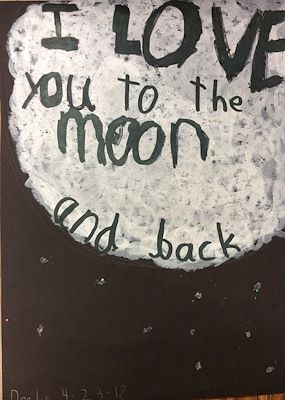 I LOVE
you to the
moon
and back
4-23-18